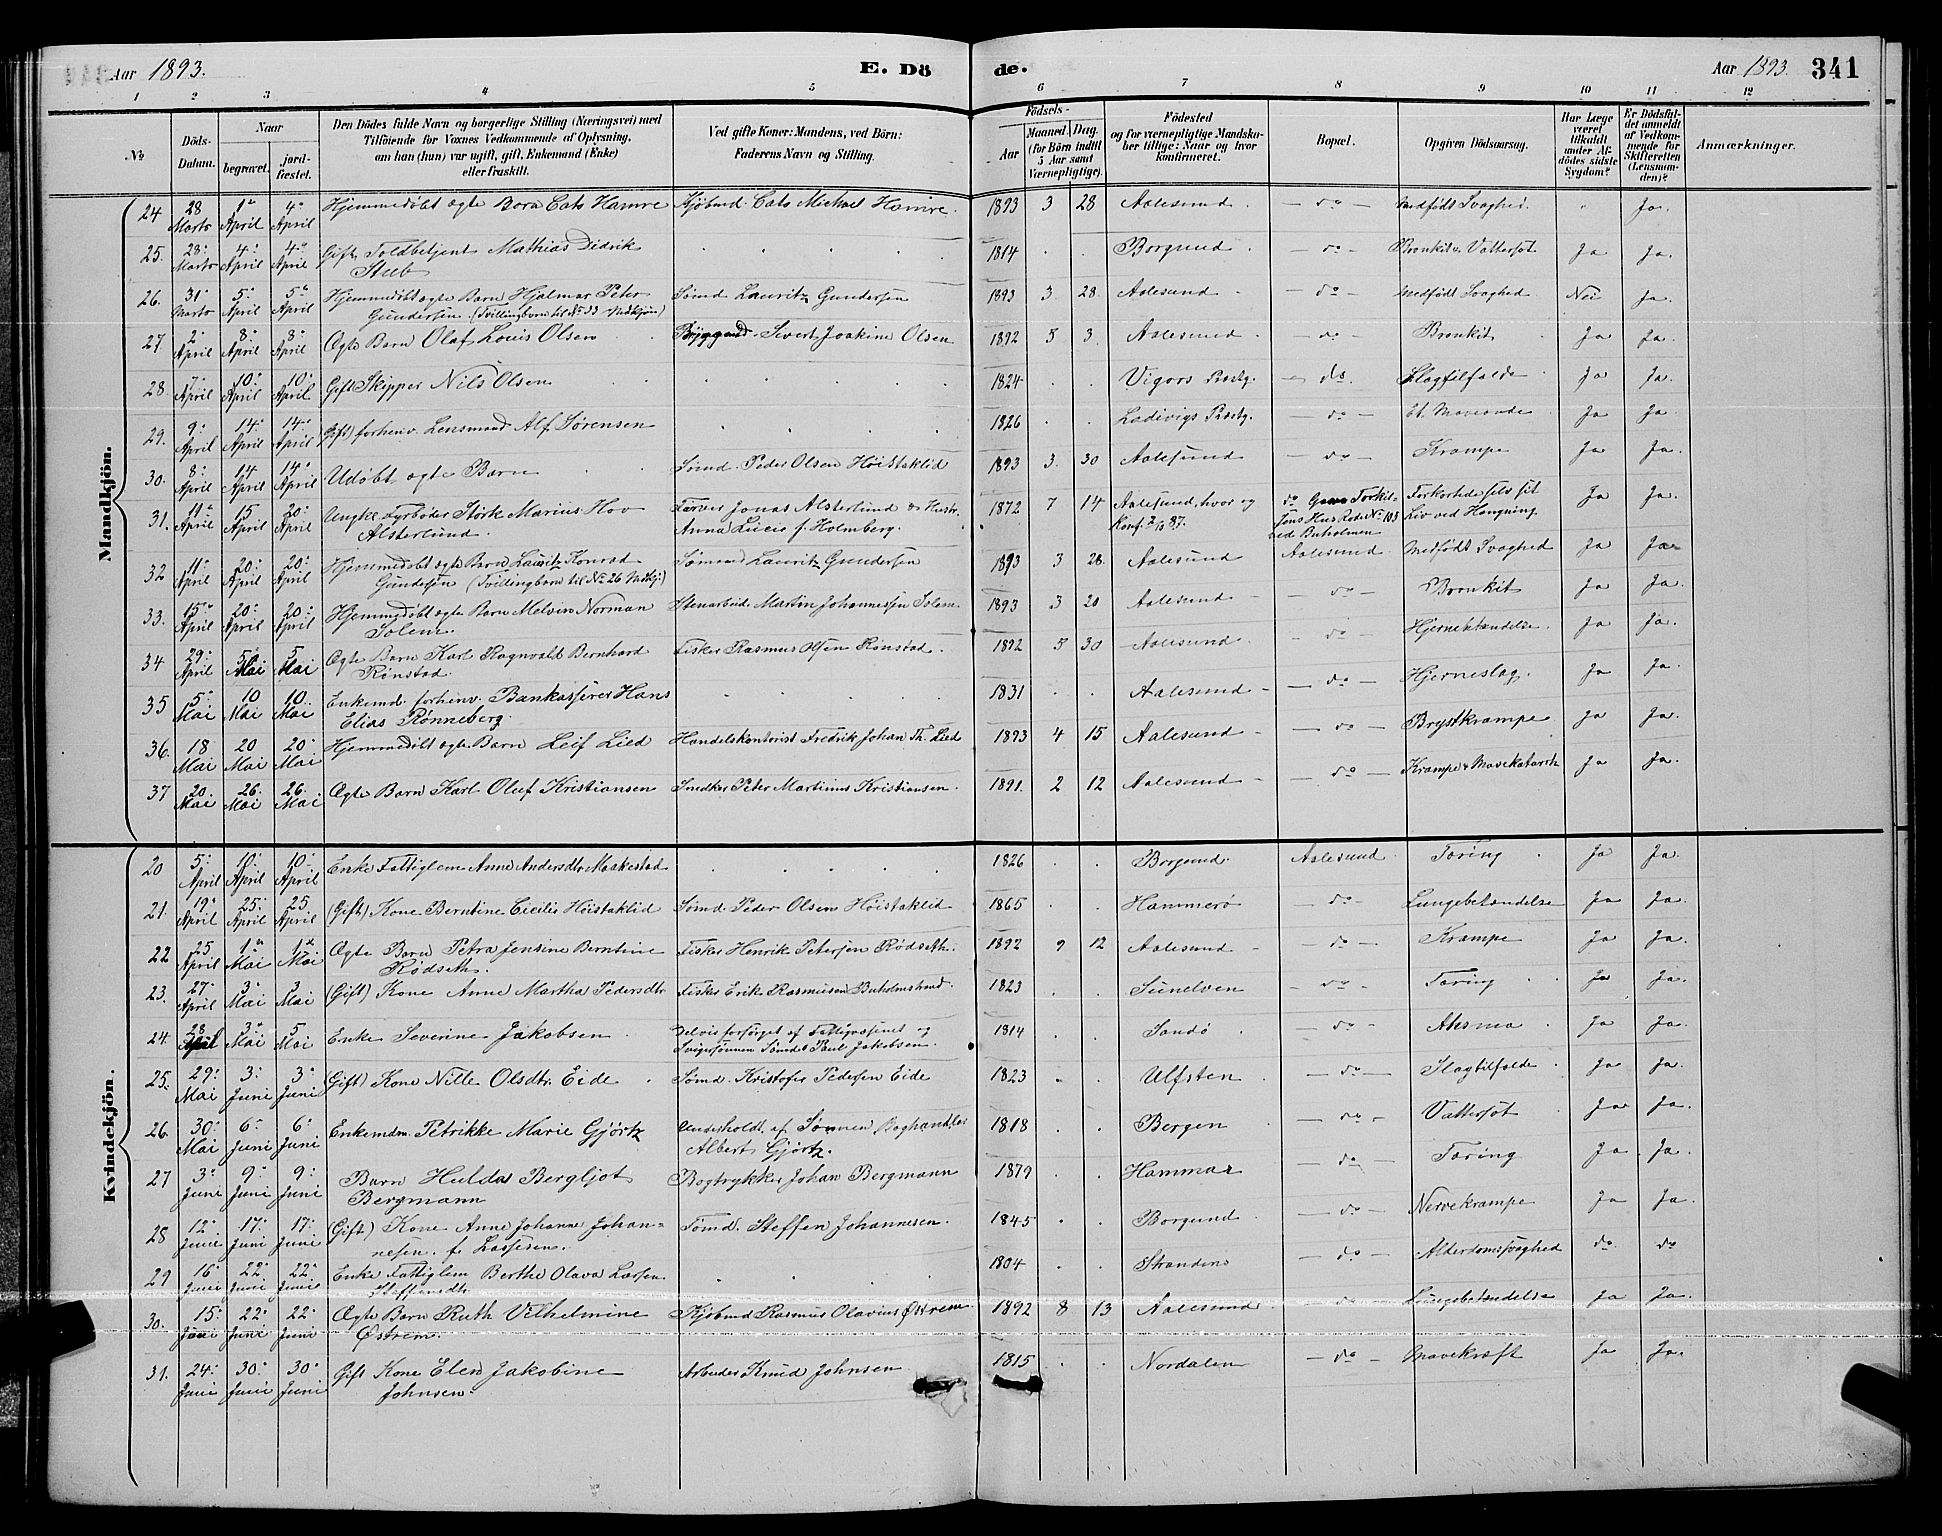 Aar 1893.
E. Dö
de.
Aar 1893.
341
1 2 3 4 5 6 7 8 9 10 11 12
No
Döds-Datum.
Naar
begravet.
jord-fæstet.
Den Dödes fulde Navn og borgerlige Stilling (Næringsvei) med
Tilföiende for Voxnes Vedkommende af Oplysning,
om han (hun) var ugift, gift, Enkemand (Enke)
eller fraskilt.
Ved gifte Koner: Mandens, ved Börn:
Faderens Navn og Stilling.
Födsels-
Aar
Maaned. Dag.
(for Börn indtil
5 Aar samt
Værnepligtige).
Födested
og for værnepligtige Mandska-
ber tillige: Naar og hvor
konfirmeret.
Bopæl.
Opgiven Dödsaarsag.
Har Læge
været
tilkaldt
under Af-
dödes sidste
Sygdom?
Er Dödsfal-
det anmeldt
af Vedkom-
mende for
Skifteretten
(Lensman-
den)?
Anmærkninger.
Mandkjön.
24 28 Marts 1ste April 4de April Hjemmedöbt ægte Barn Cats Hamre Kjöbmd. Cats Michael Hamre. 1893 3 28 Aalesund - do - Medfödt Svaghed. " Ja.
25. 28 Marts 4 April 4 April Gift Toldbetjent Mathias Didrik
Stub 1814 Borgund - do - Bronkit & Vattersot Ja Ja.
26. 31 Marts 5 April 5 April Hjemmedöbt ægte Barn Hjalmar Peter
Gundersen (Tvillingbarn til No 32 Mdkjön) Sömd Lauritz Gundersen 1893 3 28. Aalesund - do - Medfödt Svaghed Nei Ja.
27. 2 April 8 April 8 April Ægte Barn Olaf Louis Olsen Sivert Joakim Olsen 1892 5 3. Aalesund - do - Bronkit Ja Ja.
28. 7 April 10 April 10 April Gift Skipper Nils Olsen 1824 Vigørs Præstg. - do. Slagtilfælde Ja Ja.
29. 9 April 14 April 14 April (Gift) forhenv. Lensmand Alf Sørensen 1826 Ladivigs Præstg. - do - Mavesaar Ja Ja.
30. 8 April 14 April 14 April Udöbt ægte Barn Sömd. Peder Olsen Höistaklid 1893 3. 30 Aalesund - do - Krampe Ja Ja.
31. 11 April 15 April 20 April Ungke Fyrböder Störk Marius Hov
Alsterlund. Farver Jonas Alsterlund & Hustr.
Anna Lucie f. Holmberg. 1872 7 14 Aalesund, hvor og
Konf. 2/10 87. do Torkil-
sens Hus Rode No 103
ved Buholmen Forkortede selv sit
Liv ved Hængning. Ja Ja.
32 11 April 20 April 20 April Hjemmedöbt ægte Barn Lauritz Konrad
Gundersen (Tvillingbarn til No 26 Mdkj.) Sömand Lauritz Gundersen 1893 3 28. Aalesund Aalesund Medfödt Svaghed Ja Ja
33. 15 April 20 April 20 April Hjemmedöbt ægte Barn Melvin Norman
Solem. Stenarbeid. Martin Johannesen Solem. 1893 3 20 Aalesund - do - Bronkit Ja Ja.
34 29 April 5 Mai 5 Mai Ægte Barn Karl Ragnvald Bernhard
Rönstad. Fisker Rasmus Olsen Rönstad. 1892 5 30 Aalesund - do - Hjernebetændelse. Ja Ja.
35 5 Mai 10 Mai 10. Mai Enkemd. forhenv. Bankasserer Hans
Elias Rønneberg. 1831 Aalesund - do - Hjerneslag. Ja Ja.
36. 18 Mai 20 Mai 20 Mai Hjemmedöbt ægte Barn Leif Lied Handelskontorist Fredrik Johan Th. Lied 1893 4 15 Aalesund - do - Brystkrampe Ja Ja.
37 20. Mai 26. Mai 26. Mai Ægte Barn Karl Oluf Kristiansen Snedker Peter Martinus Kristiansen. 1891. 2 12 Aalesund - do - Krampe & Mavekatarrh Ja Ja.
Kvindekjön.
20 5 April 10 April 10 April Enke Fattiglem Anne Andersdtr Maakestad 1826 Borgund. Aalesund Tæring Ja Ja.
21. 19 April 25 April 25 April (Gift) Kone Berntine Cicilie Höistaklid Sömd. Peder Olsen Höistaklid 1865 Hammerö - do - Lungebetændelse Ja Ja.
22 25 April 1 Mai 1 Mai Ægte Barn Petra Jensine Berntine
Rödseth. Fisker Henrik Petersen Rödseth. 1892 9 12 Aalesund - do - Krampe Ja Ja.
23. 27 April 3 Mai 3 Mai (Gift) Kone Anne Martha Pedersdtr Fisker Erik Rasmusen Buholmstrand. 1823 Sunelven - do - Tæring Ja Ja.
24. 28 April 3 Mai 5 Mai Enke Severine Jakobsen Delvis forsörget af Fattigvæsenet og
Svigersönnen Sömd Paul Jakobsen. 1814 Sandö - do - Ahsma Ja Ja.
25. 29 Mai 3 Juni 3 Juni (Gift) Kone Nille Olsdtr. Eide Sömd. Kristofer Pedersen Eide 1823 Ulfsten - do - Slagtilfælde Ja Ja.
26. 30 Mai 6 Juni 6 Juni Enkemdm. Petrikke Marie Gjörtz Underholdt af Sönnen Boghandler
Albert Gjörtz. 1818 Bergen - do - Vattersot Ja Ja.
27 3 Juni 9 Juni 9 Juni Barn Hulda Bergljot
Bergmann Bogtrykker Johan Bergmann 1879 Hammar - do - Tæring Ja Ja.
28 12 Juni 17 Juni 17 Juni (Gift) Kone Anne Johanne Johan-
nesen. f. Lassesen. Sömd. Steffen Johannesen. 1845 Borgund - do - Nervekrampe Ja Ja.
29 16 Juni 22 Juni 22 Juni Enke Fattiglem Berthe Olava Larsen
Steffensdtr. 1804 Stranden - do - Alderdomssvaghed do. do
30. 15 Juni 22 Juni 22 Juni Ægte Barn Ruth Vilhelmine
Østrem. Kjöbmd Rasmus Olavius Østrem 1892 8 13 Aalesund do Lungebetændelse Ja Ja.
31. 24 Juni 30 Juni 30 Juni Gift Kone Elen Jakobine
Johnsen. Arbeider Knud Johnsen 1815 Nordalen - do - Mavekræft Ja Ja.